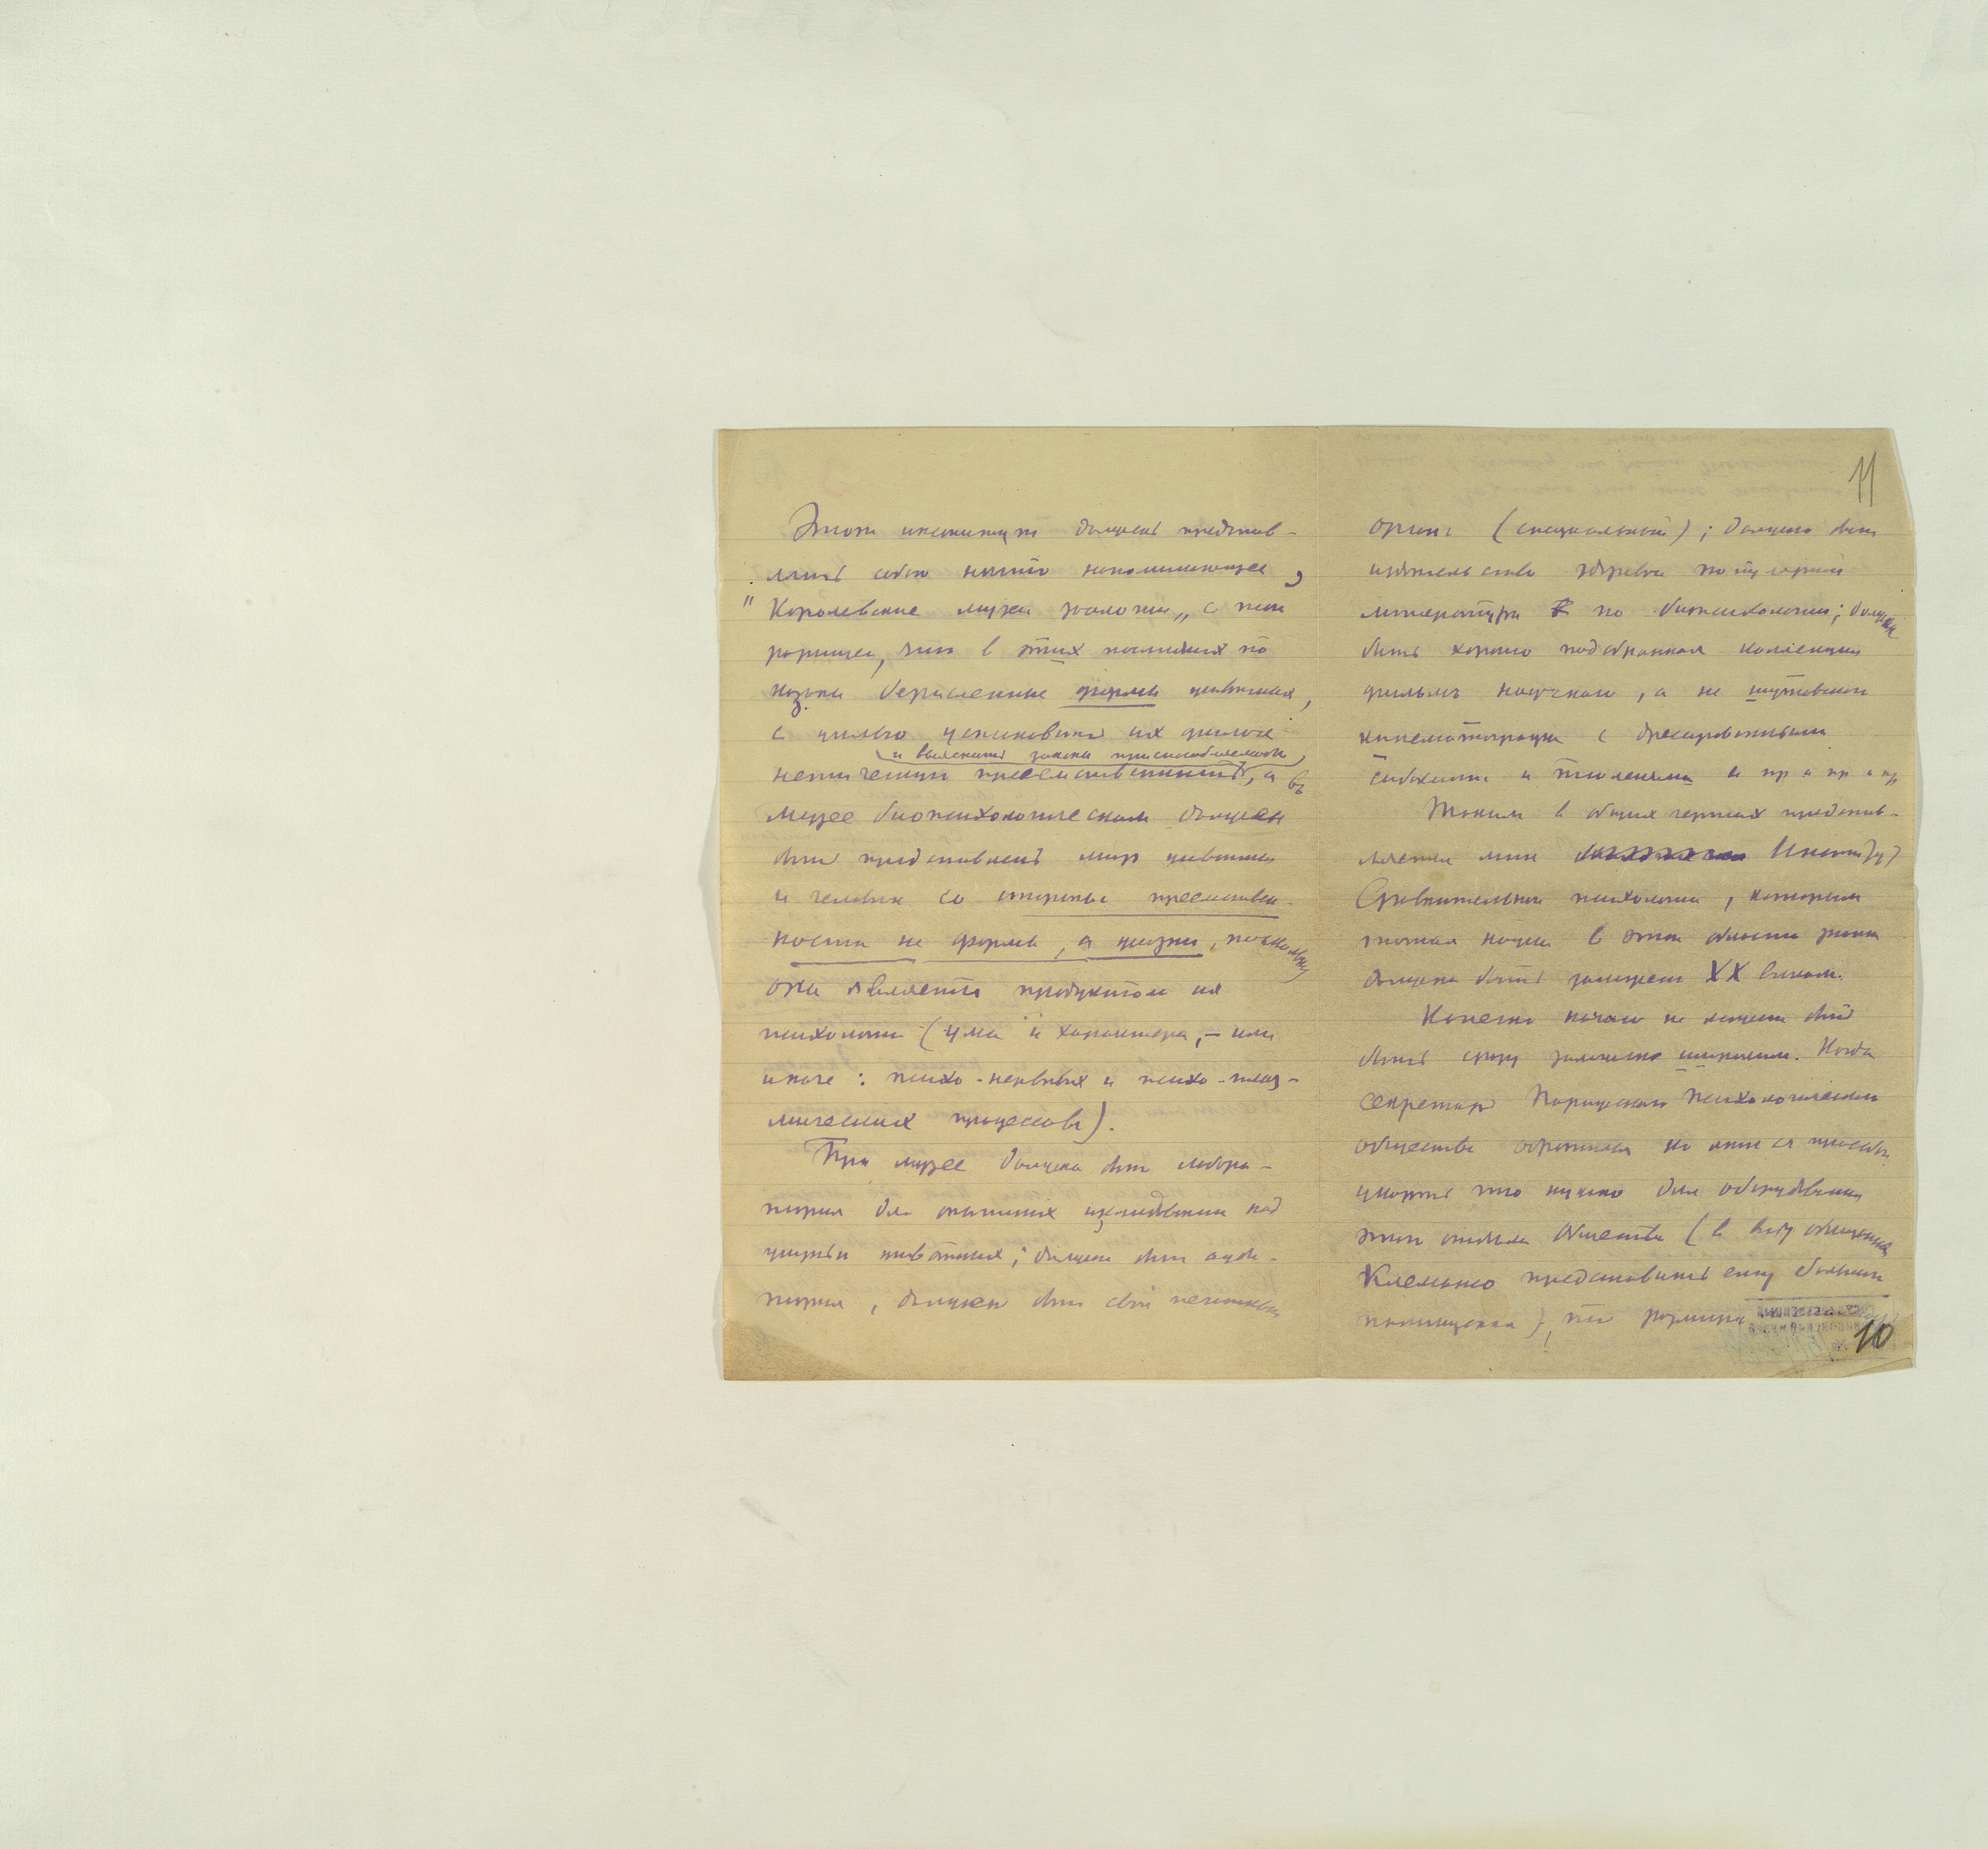 Этот институт должен представ-
лять собою нечто напоминающее
"Королевские музеи зоологии„ с тою
разницей, что в этих последних по
казаны бесчисленные формы животных,
с целью установить их филоге
и выяснить законы приспособляемости
нетическую преемственность, а въ
Музее биопсихологическом должен
быть представлен мир животных
и человека со стороны преемствен-
ности не формы, а жизни, поскольку
она является продуктом их
психологии (ума и характера, – или
иначе: психо-нервных и психо-плаз-
мических процессовъ).
При музее должна быть лабора-
тория для опытных изследований над
жизнью животных; должна быть ауди-
тория, должен быть свой печатный
11
орган (специальный); должно быть
издательство здравой популярной
литературы по биопсихологии; должна
быть хорошо подобранная коллекция
фильмъ научного, а не шутовского
кинематографа с дрессированными
собаками и тюленями и пр и пр и пр
Таким в общих чертах представ-
ляется мне Институт
Сравнительной психологии, которым
точная наука в этой области знания
должна быть XX веком.
Конечно начало не может быть
быть сразу широким. Когда
секретарь Парижского Психологического
общества обратился ко мне съ просьбой
указать что нужно для оборудования
этого отдела общества (в виду обещания
Клемансо предоставить ему большое
помещение), то
10